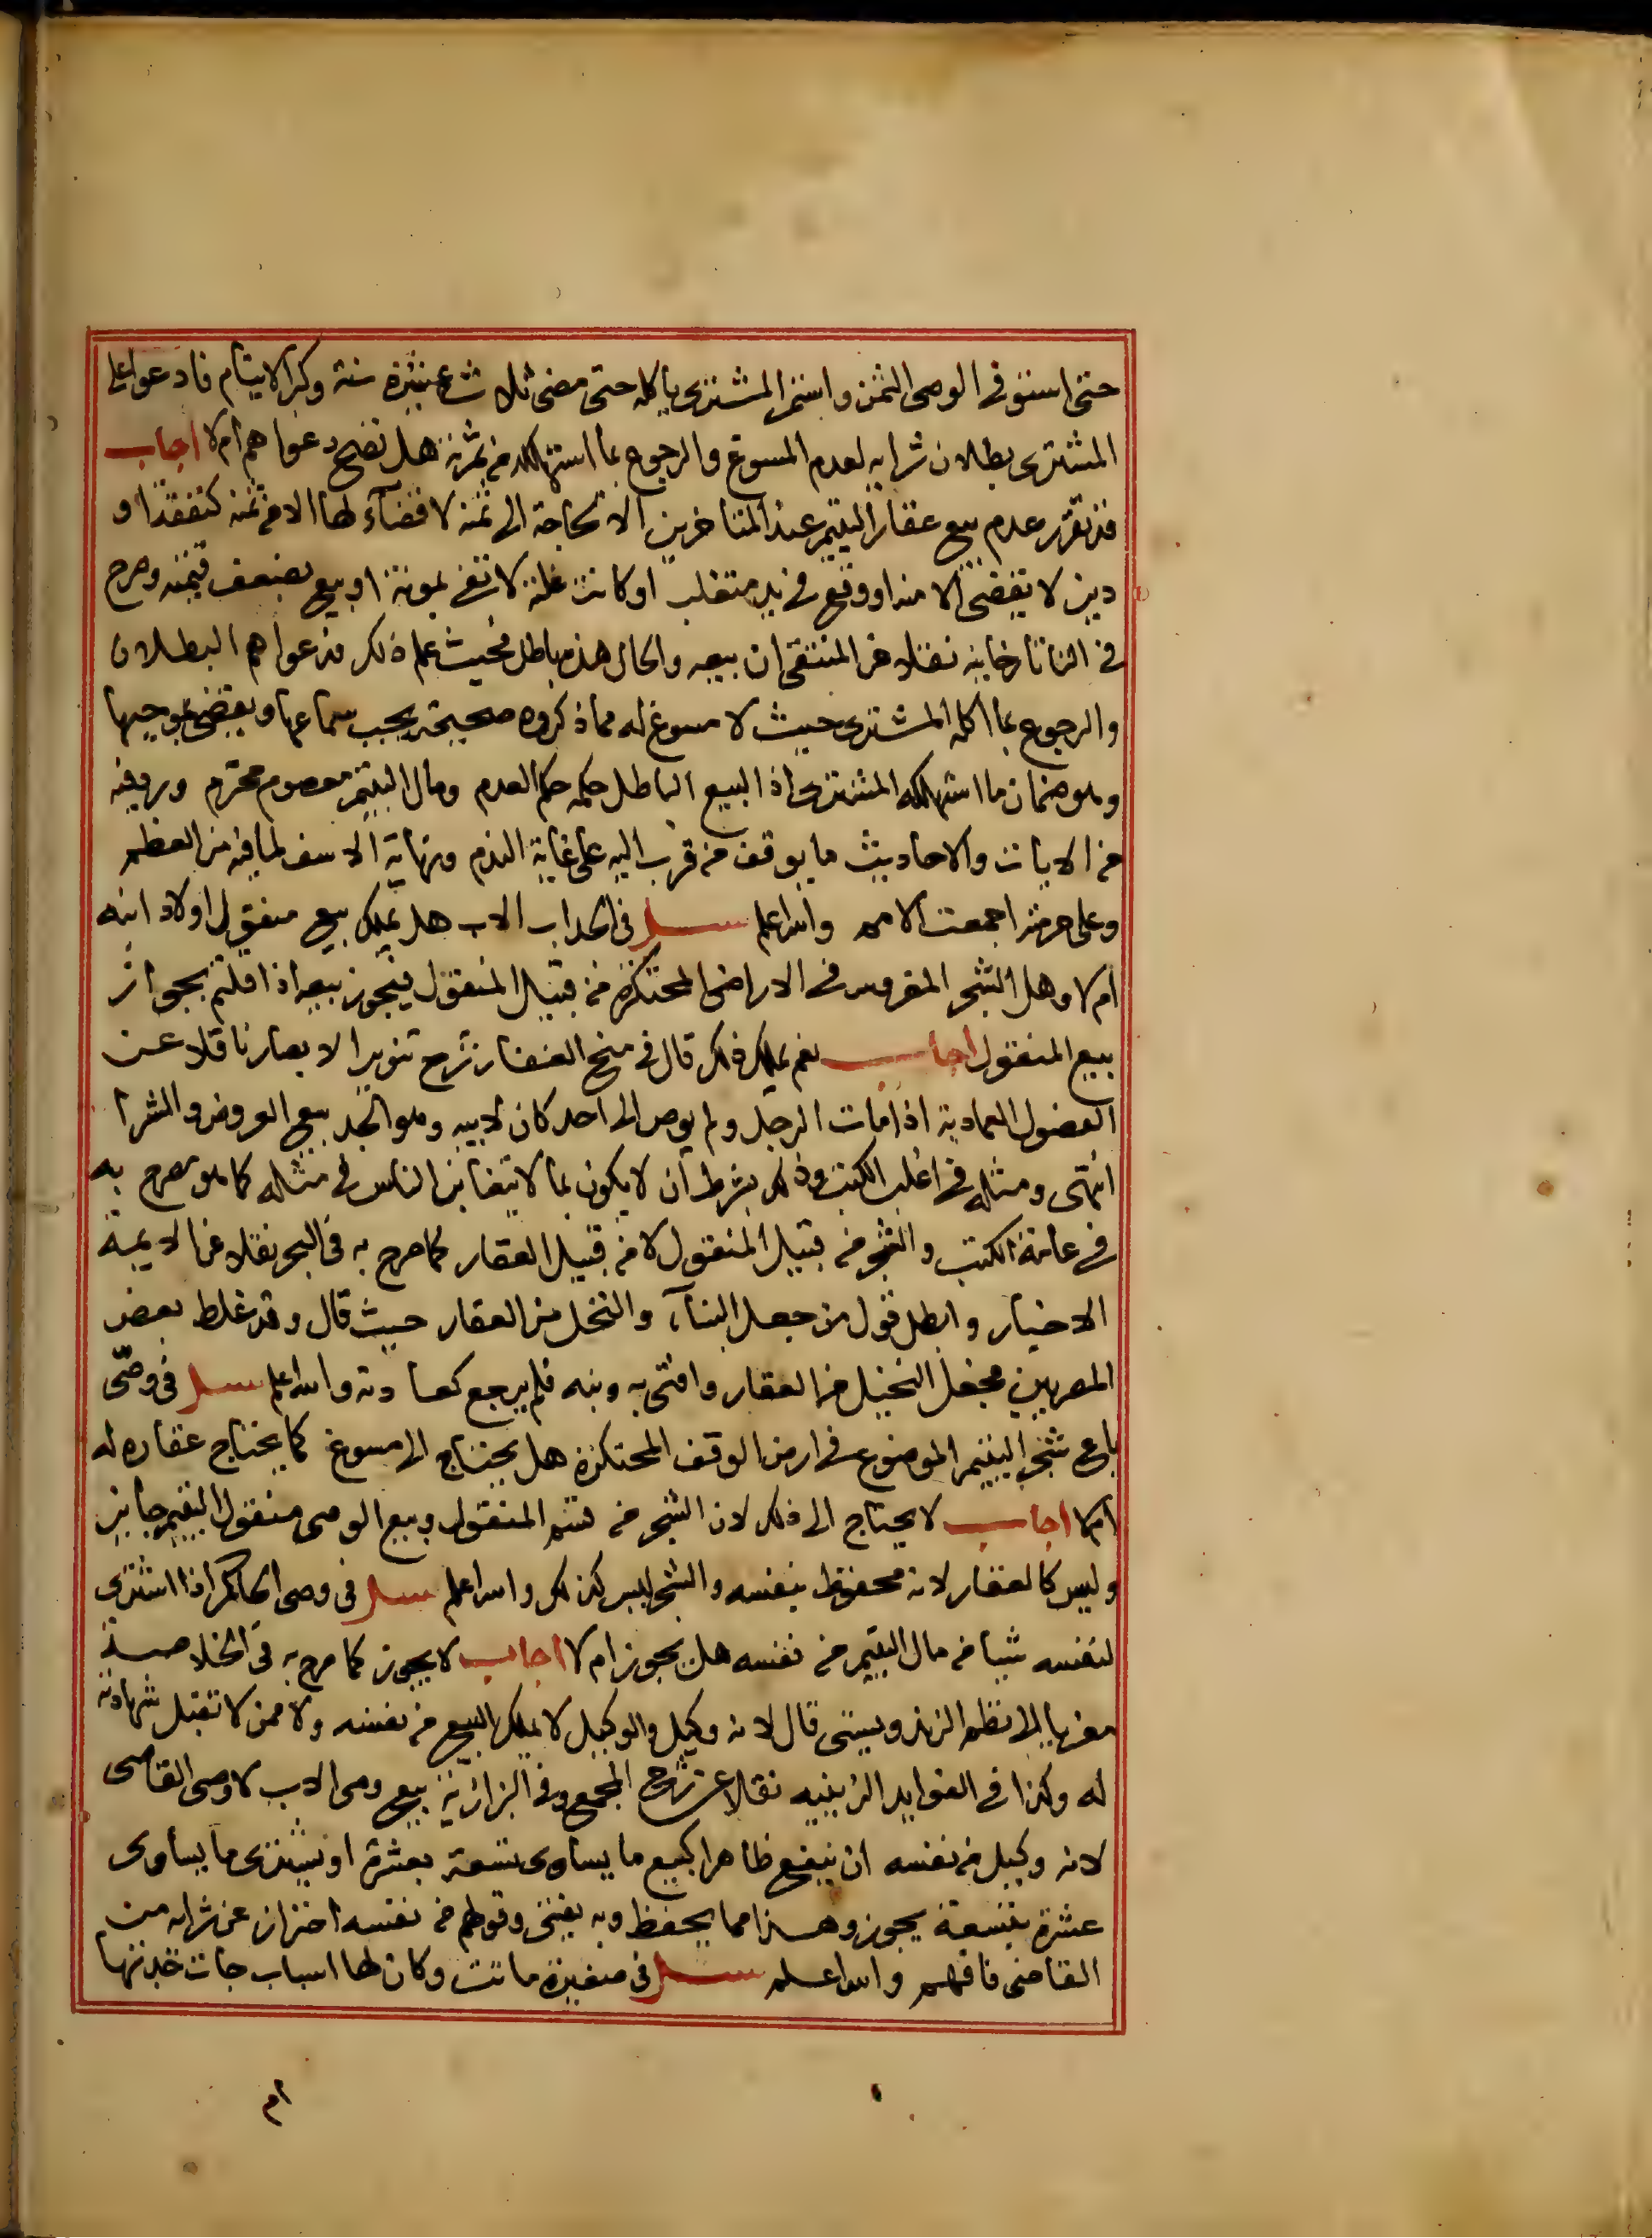 حتى استوفى الوصى الثمن واستمر المشترى ياكله حتى مضى ثلاث عشرة سنة وكبر الايتام فادعوا على
المشترى بطلان شرايه لعدم المسوغ والرجوع بما استهلكه من ثمرته هل تصح دعواهم ام لا اجاب
قد تقرر عدم بيع عقار اليتيم عند المتاخرين الا لحاجة الى ثمنه لا قضآء لها الا من ثمنه كنفقة او
دين لا يقضى الا منه او وقع فى يد متغلب او كانت غلته لا تفى بمونته او بيع بضعف قيمته وصرح
فى التاتارخانيه نقلا عن المنتقى ان بيعه والحال هذه باطل فحيث علم ذلك فدعواهم البطلان
والرجوع بما اكله المشترى حيث لا مسوغ له مما ذكروه صحيحة يجب سماعها ويقضى بموجبها
وهو ضمان ما استهلكه المشترى اذ البيع الباطل حكمه حكم العدم ومال اليتيم معصوم محترم ورد فيه
من الايات والاحاديث ما يوقف من قرب اليه على غاية الندم ونهاية الاسف لما فيه من العظم
وعلى حرمته اجمعت الامم والله اعلم سئل فى الجد اب الاب هل يملك بيع منقول اولاد ابنه
ام لا وهل الشجر المغروس فى الاراضى المحتكرة من قبيل المنقول فيجوز بيعه اذا قلتم بجواز
بيع المنقول اجاب نعم يملك ذلك قال فى منح الغفار شرح تنوير الابصار ناقلا عن
الفصول العمادية اذا مات الرجل ولم يوص الى احد كان لابيه وهو الجد بيع العروض والشرا
انتهى ومثله فى اغلب الكتب وذلك بشرط ان لا يكون بما لا يتغابن الناس فى مثله كما هو مصرح به
فى عامة الكتب والشجر من قبيل المنقول لا من قبيل العقار كما صرح به فى البحر نقلا عن الايمة
الاخيار وابطل قول من جعل البنآء والنخل من العقار حيث قال وقد غلط بعض
المصريين فجعل النخيل من العقار وافتى به ونبه فلم يرجع كعادته والله اعلم سئل فى وصى
باع شجر اليتيم الموضوع فى ارض الوقف المحتكرة هل يحتاج الى مسوغ كما يحتاج عقاره له
ام لا اجاب لا يحتاج الى ذلك لان الشجر من قسم المنقول وبيع الوصى منقول اليتيم جايز
وليس كالعقار لانه محفوظ بنفسه والشجر ليس كذلك والله اعلم سئل فى وصى الحاكم اذا اشترى
لنفسه شيا من مال اليتيم من نفسه هل يجوز ام لا اجاب لا يجوز كما صرح به فى الخلاصة
معزيا الى نظم الزندويستى قال لانه وكيل والوكيل لا يملك البيع من نفسه ولا ممن لا تقبل شهادته
له وكذا فى الفوايد الزينيه نقلا عن شرح المجمع وفى البزازية بيع وصى الاب لا وصى القاضى
لانه وكيل من نفسه ان بنفع ظاهر كبيع ما يساوى تسعة بعشرة او يشترى ما يساوى
عشرة بتسعة يجوز وهذا مما يحفظ وبه يفتى وقولهم من نفسه احتراز عن شرايه من
القاضى فافهم والله اعلم سئل فى صغيرة ماتت وكان لها اسباب جات جدتها
ام